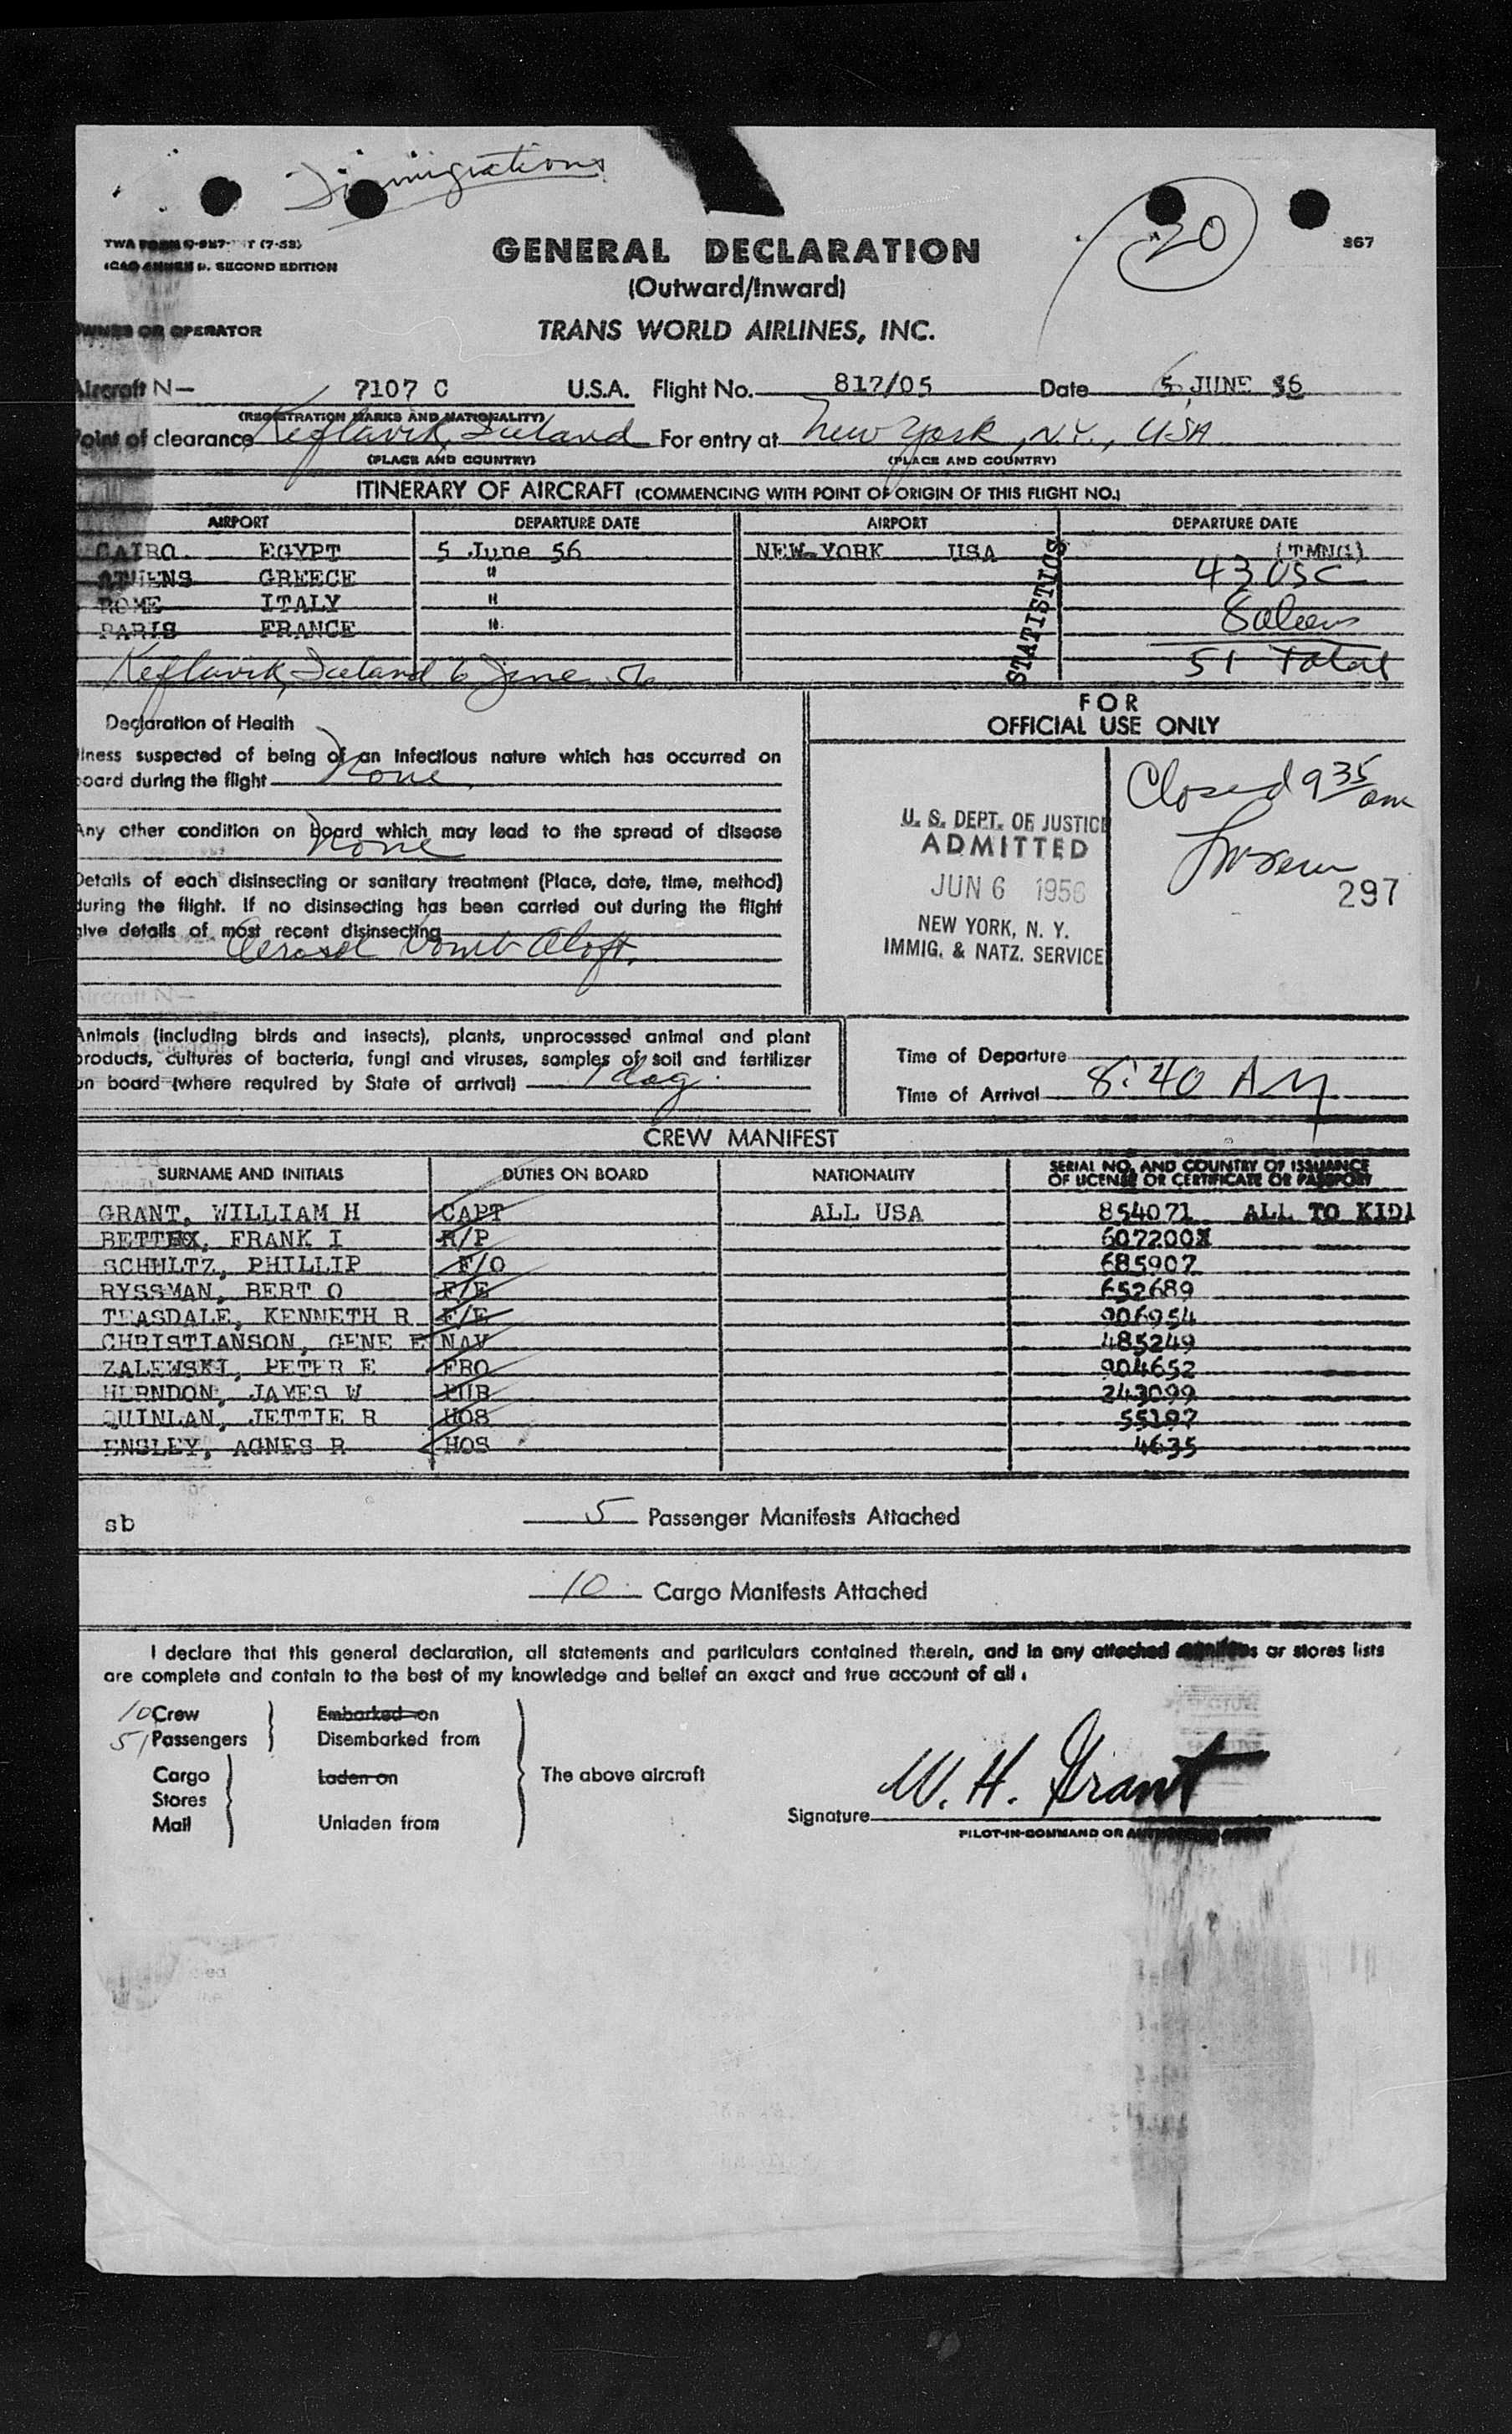 Immigrations
20
867
TWA FORM (7-53)
ICAO ANNEX 9. SECOND EDITION
GENERAL DECLARATION
(Outward/Inward)
OWNER OR OPERATOR TRANS WORLD AIRLINES, INC.
Aircraft N— 7107 C U.S.A. Flight No. 817/05 Date 6 JUNE 56
(REGISTRATION MARKS AND NATIONALITY)
Point of clearance Keflavik, Iceland For entry at New York, N.Y., USA
(PLACE AND COUNTRY) (PLACE AND COUNTRY)
ITINERARY OF AIRCRAFT (COMMENCING WITH POINT OF ORIGIN OF THIS FLIGHT NO.)
AIRPORT DEPARTURE DATE AIRPORT DEPARTURE DATE
CAIRO EGYPT 5 June 56 NEW YORK USA (TMNG)
ATHENS GREECE " 43 USC
ROME ITALY " 8 aliens
PARIS FRANCE "
Keflavik, Iceland 6 June 56 51 Total
STATISTICS
Declaration of Health
Illness suspected of being of an infectious nature which has occurred on
board during the flight None
Any other condition on board which may lead to the spread of disease
None
Details of each disinsecting or sanitary treatment (Place, date, time, method)
during the flight. If no disinsecting has been carried out during the flight
give details of most recent disinsecting
Aerosol bomb aloft.
FOR
OFFICIAL USE ONLY
U. S. DEPT. OF JUSTICE
ADMITTED
JUN 6 1956
NEW YORK, N. Y.
IMMIG. & NATZ. SERVICE
Closed 9 35 am
297
Aircraft N—
Animals (including birds and insects), plants, unprocessed animal and plant
products, cultures of bacteria, fungi and viruses, samples of soil and fertilizer
on board (where required by State of arrival) 1 dog.
Time of Departure
Time of Arrival 8:40 AM
CREW MANIFEST
SURNAME AND INITIALS DUTIES ON BOARD NATIONALITY SERIAL NO. AND COUNTRY OF ISSUANCE
OF LICENSE OR CERTIFICATE OR PASSPORT
GRANT, WILLIAM H CAPT ALL USA 854071 ALL TO KIDL
FRANK I R/P 607200
SCHULTZ, PHILLIP F/O 685907
RYSSMAN, BERT O F/E 652689
TEASDALE, KENNETH R F/E 906954
CHRISTIANSON, GENE E NAV 485249
ZALEWSKI, PETER E FRO 904652
HERNDON, JAMES W PUR 243099
QUINLAN, JETTIE B HOS 55197
ENSLEY, AGNES R HOS 4635
sb
5 Passenger Manifests Attached
10 Cargo Manifests Attached
I declare that this general declaration, all statements and particulars contained therein, and in any attached manifests or stores lists
are complete and contain to the best of my knowledge and belief an exact and true account of all:
10 Crew Embarked on
51 Passengers Disembarked from
Cargo Laden on The above aircraft
Stores
Mail Unladen from
Signature W. H. Grant
PILOT-IN-COMMAND OR AUTHORIZED AGENT